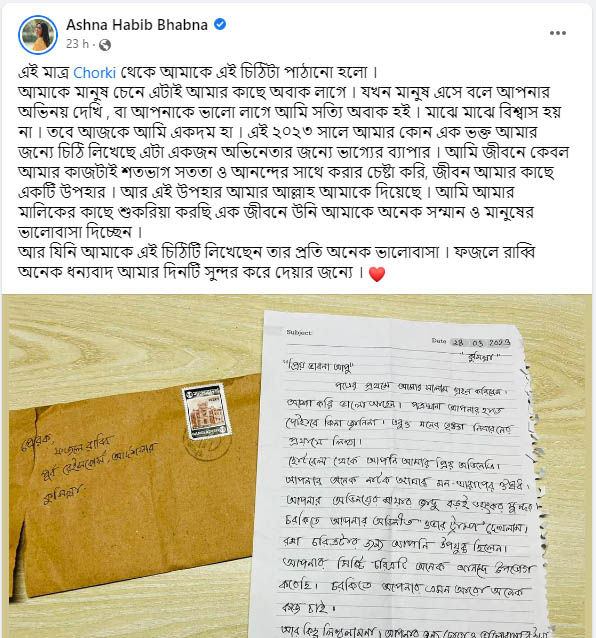 Ashna Habib Bhabna
23 h
এই মাত্র Chorki থেকে আমাকে এই চিঠিটা পাঠানো হলো ।
আমাকে মানুষ চেনে এটাই আমার কাছে অবাক লাগে । যখন মানুষ এসে বলে আপনার
অভিনয় দেখি , বা আপনাকে ভালো লাগে আমি সত্যি অবাক হই । মাঝে মাঝে বিশ্বাস হয়
না । তবে আজকে আমি একদম হা । এই ২০২৩ সালে আমার কোন এক ভক্ত আমার
জন্যে চিঠি লিখেছে এটা একজন অভিনেতার জন্যে ভাগ্যের ব্যাপার । আমি জীবনে কেবল
আমার কাজটাই শতভাগ সততা ও আনন্দের সাথে করার চেষ্টা করি, জীবন আমার কাছে
একটি উপহার । আর এই উপহার আমার আল্লাহ আমাকে দিয়েছে । আমি আমার
মালিকের কাছে শুকরিয়া করছি এক জীবনে উনি আমাকে অনেক সম্মান ও মানুষের
ভালোবাসা দিচ্ছেন ।
আর যিনি আমাকে এই চিঠিটি লিখেছেন তার প্রতি অনেক ভালোবাসা । ফজলে রাব্বি
অনেক ধন্যবাদ আমার দিনটি সুন্দর করে দেয়ার জন্যে । ❤️
Subject:
Date 28 03 2023
"কুমিল্লা"
"প্রিয় ভাবনা আপু"
পত্রের প্রথমে আমার সালাম গ্রহণ করিবেন।
আশা করি ভালো আছেন। পত্রখানা আপনার হাতে
পৌছাবে কিনা জানিনা। তবুও মনের
লিখা।
ছোটবেলা থেকে আপনি আমার প্রিয় অভিনেত্রী।
আপনার অনেক নাটক আমার মন-খারাপের ঔষধ।
আপনার অভিনয়ের বড়ই সুন্দর
চরকিতে আপনার অভিনীত দেখলাম।
চরিত্রটার জন্য আপনি উপযুক্ত ছিলেন।
আপনার মিষ্টি অনেক আনন্দে উপভোগ
করেছি। চরকিতে আপনার এমন আরো অনেক
কাজ চাই।
আর কিছু লিখলামনা। আপনার জন্য
প্রেরক,
ফজলে রাব্বি
পূর্ব
কুমিল্লা